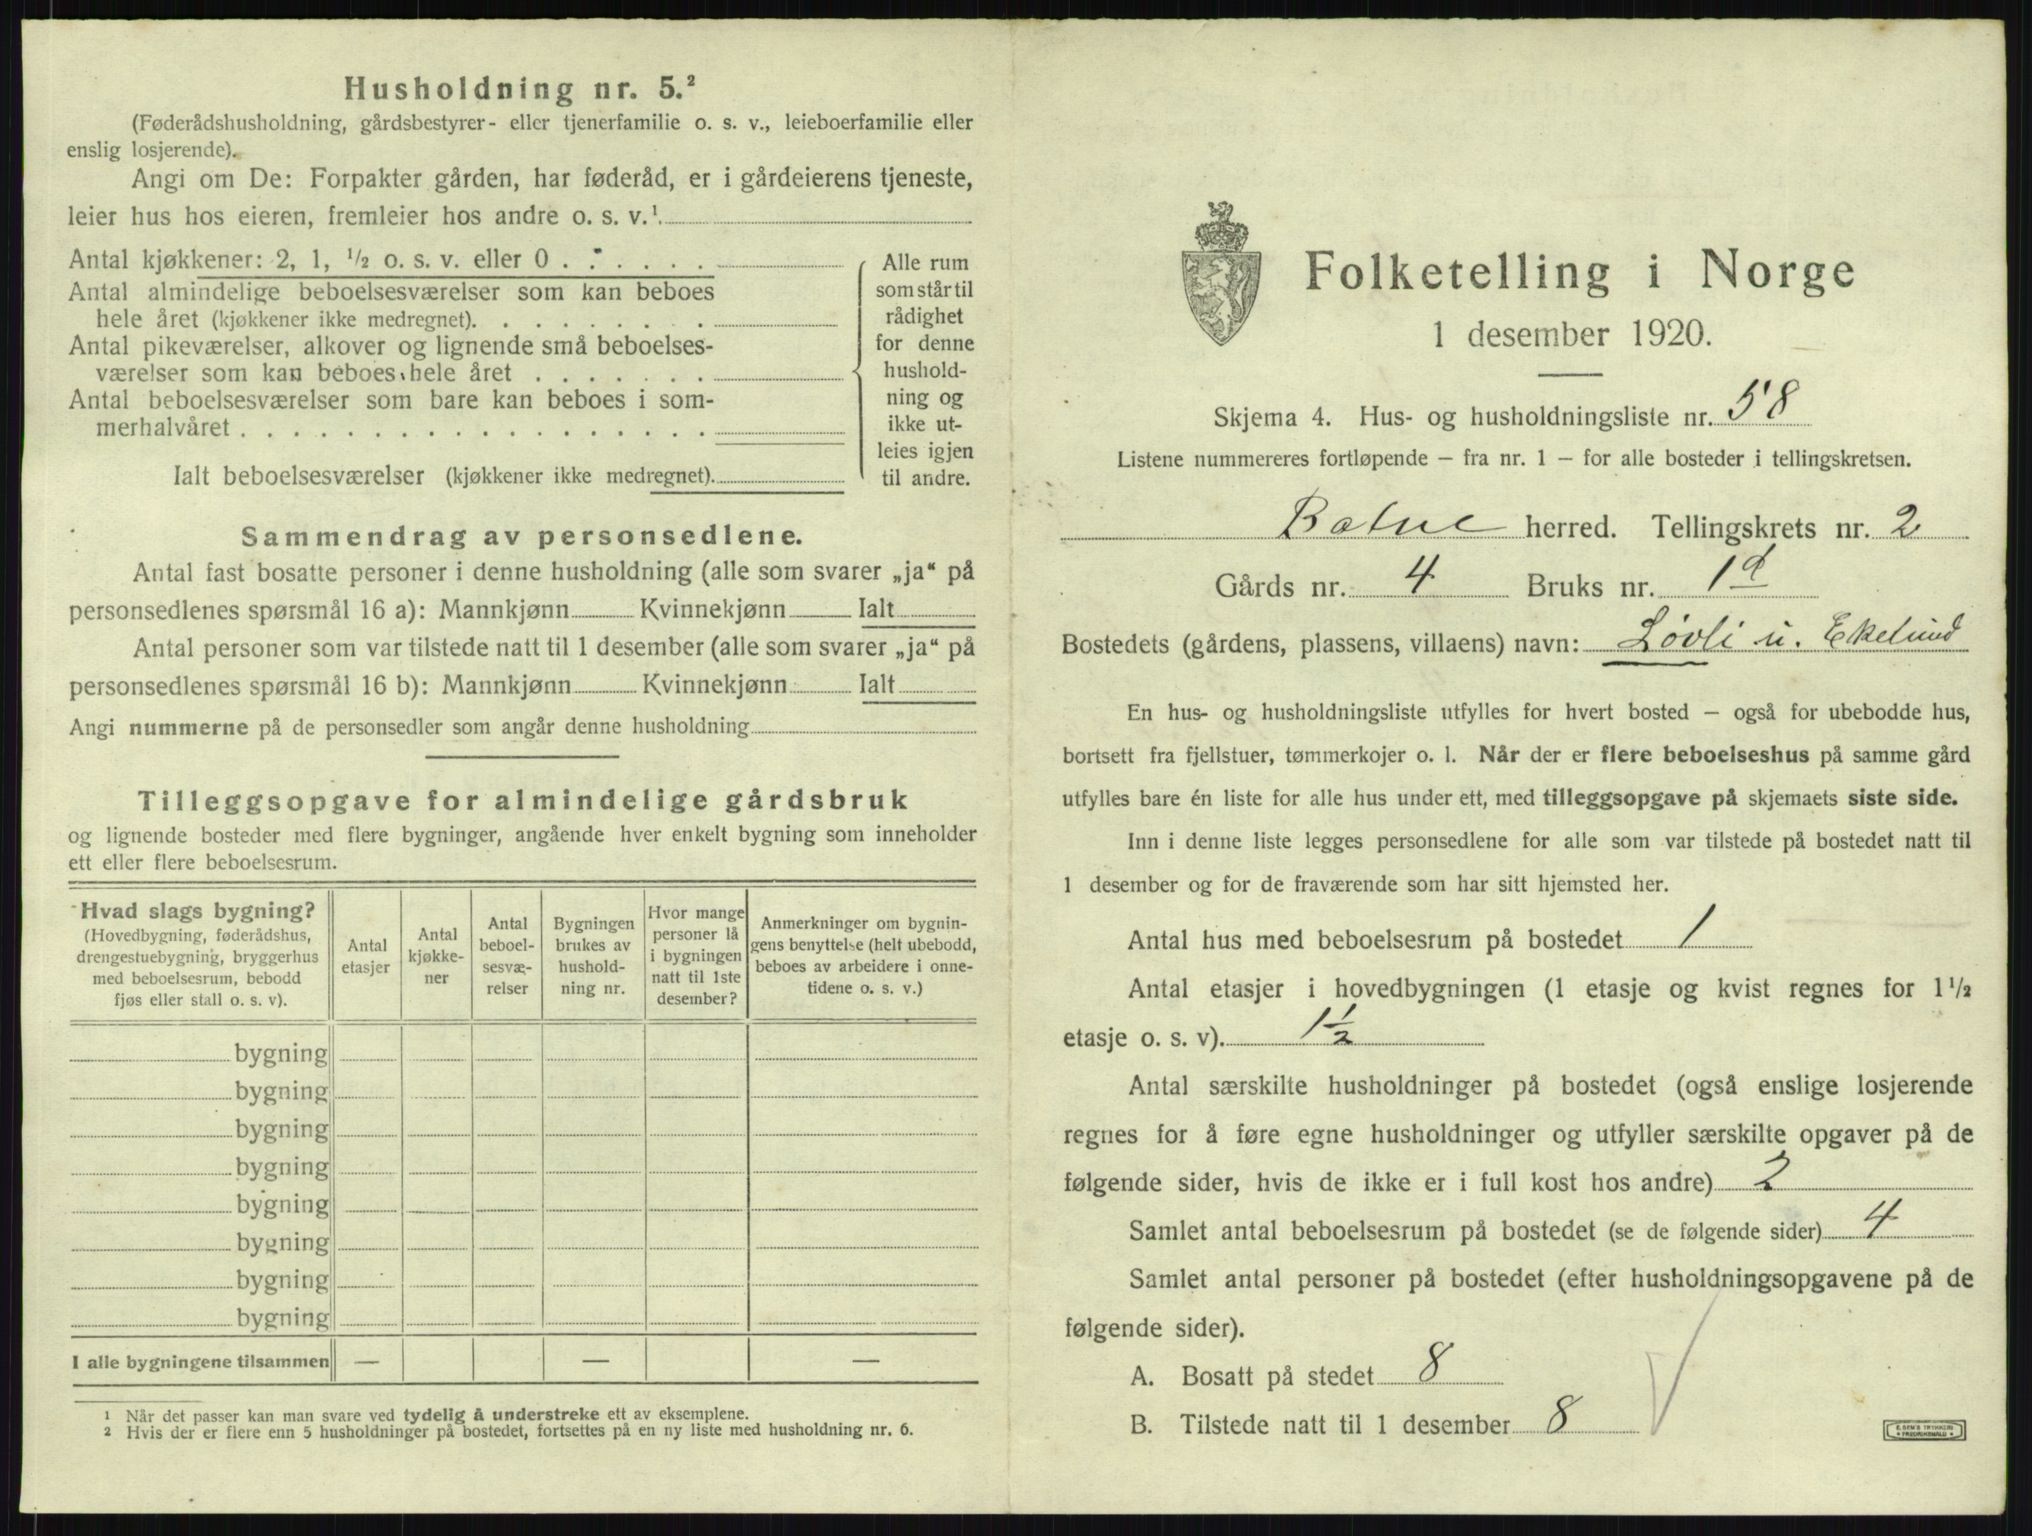 Husholdning nr. 5.²
(Føderådshusholdning, gårdsbestyrer- eller tjenerfamilie o. s. v., leieboerfamilie eller
enslig losjerende).
Angi om De: Forpakter gården, har føderåd, er i gårdeierens tjeneste,
leier hus hos eieren, fremleier hos andre o. s. v.¹
Antal kjøkkener: 2, 1, ½ o. s. v. eller 0 . . . . . .
Antal almindelige beboelsesværelser som kan beboes
hele året (kjøkkener ikke medregnet). . . . . . . .
Antal pikeværelser, alkover og lignende små beboelses-
værelser som kan beboes hele året . . . . . . .
Antal beboelsesværelser som bare kan beboes i som-
merhalvåret . . . . . . . . . . . . . . . . . .
Ialt beboelsesværelser (kjøkkener ikke medregnet).
Alle rum
som står til
rådighet
for denne
hushold-
ning og
ikke ut-
leies igjen
til andre.
Sammendrag av personsedlene.
Antal fast bosatte personer i denne husholdning (alle som svarer „ja“ på
personsedlenes spørsmål 16 a): Mannkjønn Kvinnekjønn Ialt
Antal personer som var tilstede natt til 1 desember (alle som svarer „ja“ på
personsedlenes spørsmål 16 b): Mannkjønn Kvinnekjønn Ialt
Angi nummerne på de personsedler som angår denne husholdning
Tilleggsopgave for almindelige gårdsbruk
og lignende bosteder med flere bygninger, angående hver enkelt bygning som inneholder
ett eller flere beboelsesrum.
Hvad slags bygning?
(Hovedbygning, føderådshus,
drengestuebygning, bryggerhus
med beboelsesrum, bebodd
fjøs eller stall o. s. v).
Antal
etasjer
Antal
kjøkke-
ner
Antal
beboel-
sesvæ-
relser
Bygningen
brukes av
hushold-
ning nr.
Hvor mange
personer lå
i bygningen
natt til 1ste
desember?
Anmerkninger om bygnin-
gens benyttelse (helt ubebodd,
beboes av arbeidere i onne-
tidene o. s. v.)
bygning
bygning
bygning
bygning
bygning
bygning
bygning
bygning
I alle bygningene tilsammen — — —
¹ Når det passer kan man svare ved tydelig å understreke ett av eksemplene.
² Hvis der er flere enn 5 husholdninger på bostedet, fortsettes på en ny liste med husholdning nr. 6.
Folketelling i Norge
1 desember 1920.
Skjema 4. Hus- og husholdningsliste nr. 58
Listene nummereres fortløpende – fra nr. 1 – for alle bosteder i tellingskretsen.
Batne herred. Tellingskrets nr. 2
Gårds nr. 4 Bruks nr. 1 d
Bostedets (gårdens, plassens, villaens) navn: Løvli u. Ekelund
En hus- og husholdningsliste utfylles for hvert bosted – også for ubebodde hus,
bortsett fra fjellstuer, tømmerkojer o. l. Når der er flere beboelseshus på samme gård
utfylles bare én liste for alle hus under ett, med tilleggsopgave på skjemaets siste side.
Inn i denne liste legges personsedlene for alle som var tilstede på bostedet natt til
1 desember og for de fraværende som har sitt hjemsted her.
Antal hus med beboelsesrum på bostedet 1
Antal etasjer i hovedbygningen (1 etasje og kvist regnes for 1½
etasje o. s. v). 1½
Antal særskilte husholdninger på bostedet (også enslige losjerende
regnes for å føre egne husholdninger og utfyller særskilte opgaver på de
følgende sider, hvis de ikke er i full kost hos andre) 2
Samlet antal beboelsesrum på bostedet (se de følgende sider) 4
Samlet antal personer på bostedet (efter husholdningsopgavene på de
følgende sider).
A. Bosatt på stedet 8
B. Tilstede natt til 1 desember 8